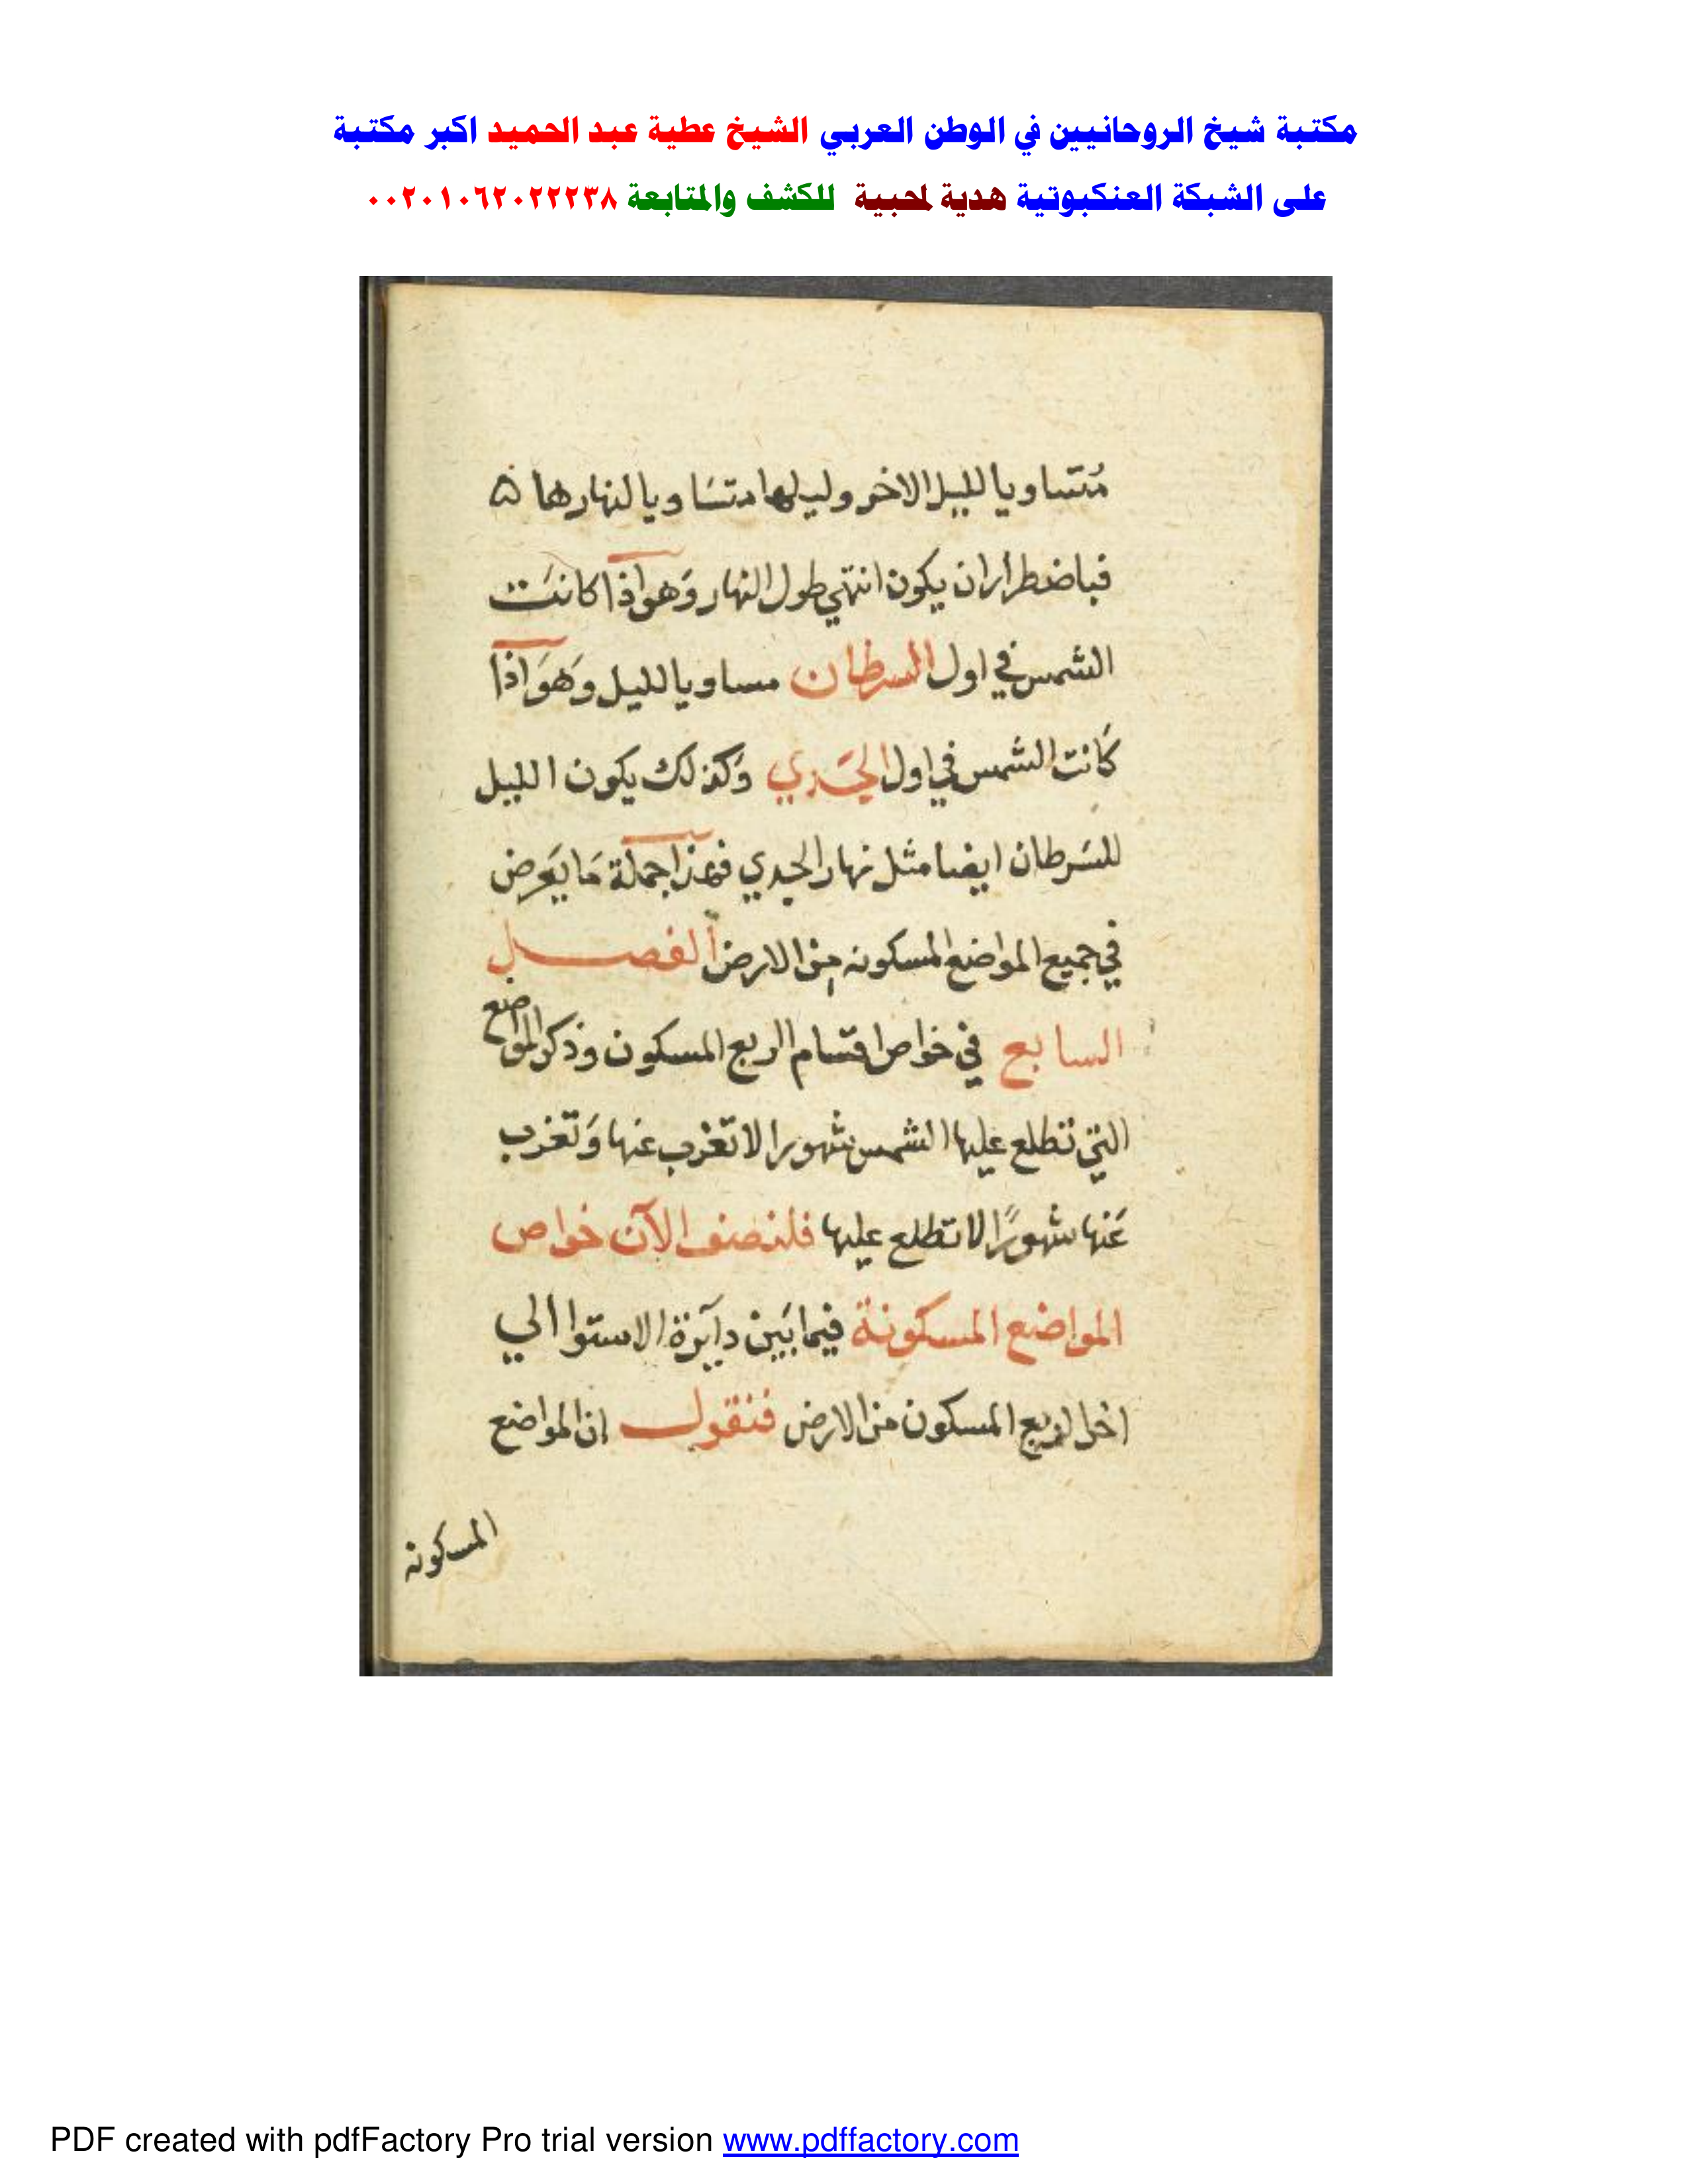 مكتبة شيخ الروحانيين في الوطن العربي الشيخ عطية عبد الحميد اكبر مكتبة
على الشبكة العنكبوتية هدية لمحبية للكشف والمتابعة ٠٠٢٠١٠٦٢٠٢٢٢٣٨
مُتساويا لليل الاخر وليلها متسَاويا لنهارها ۵
فباضطراران يكون انتهي طول النهار وَهو اذا كانَت
الشمس في اول السرطان مساويا لليل وَهوَ اذا
كَانت الشمس في اول الجَدي وَكذلك يكون الليل
للسَرطان ايضا مثل نهار الجدي فهذا جملة مَا يَعرض
في جميع المواضع المسكونه من الارض الفصل
السابع في خواص اقسام الربع المسكون وذكر المواضع
التي تطلع عليها الشمس شهورا لا تغرب عنها وَتغرب
عَنها شهورًا لا تطلع عليها فلنصنف الآن خواص
المواضع المسكونة فيما بَين دآيرة الاستوا الي
اخر الربع المسكون من الارض فنقول ان المواضع
المسكونه
PDF created with pdfFactory Pro trial version www.pdffactory.com